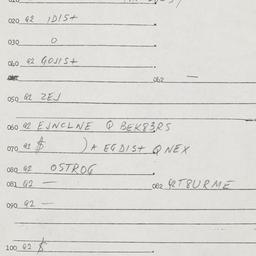 020 42 IDIS+
030 0
040 42 GOJIS+
062 —
050 42 ZEJ
060 42 EJNCLNE Q BEK83RS
070 42 $ )A EGDIS+ QNEX
080 42 OSTROG
081 42 — 082 42T8URME
090 42 —
100 42 $